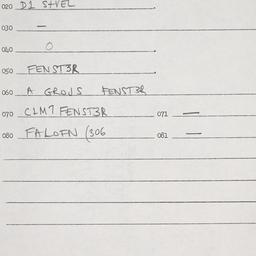 020 D1 STVEL
030 —
040 O
050 FENST3R
060 A GROJS FENST3R
070 CLM7 FENST3R 071 —
080 FALOFN (306 081 —